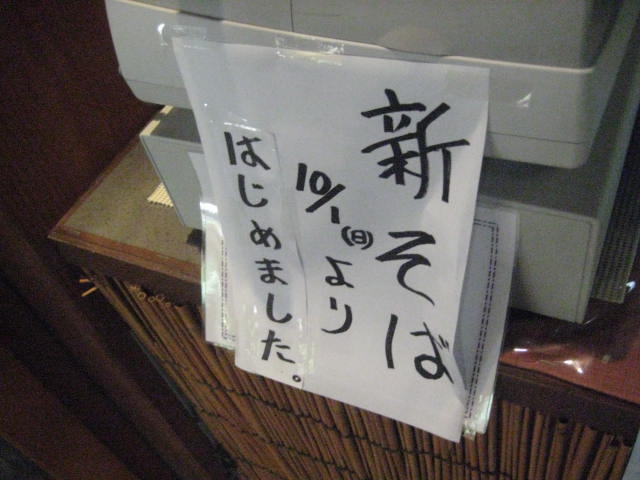 新そば
10/1(日)より
はじめました。